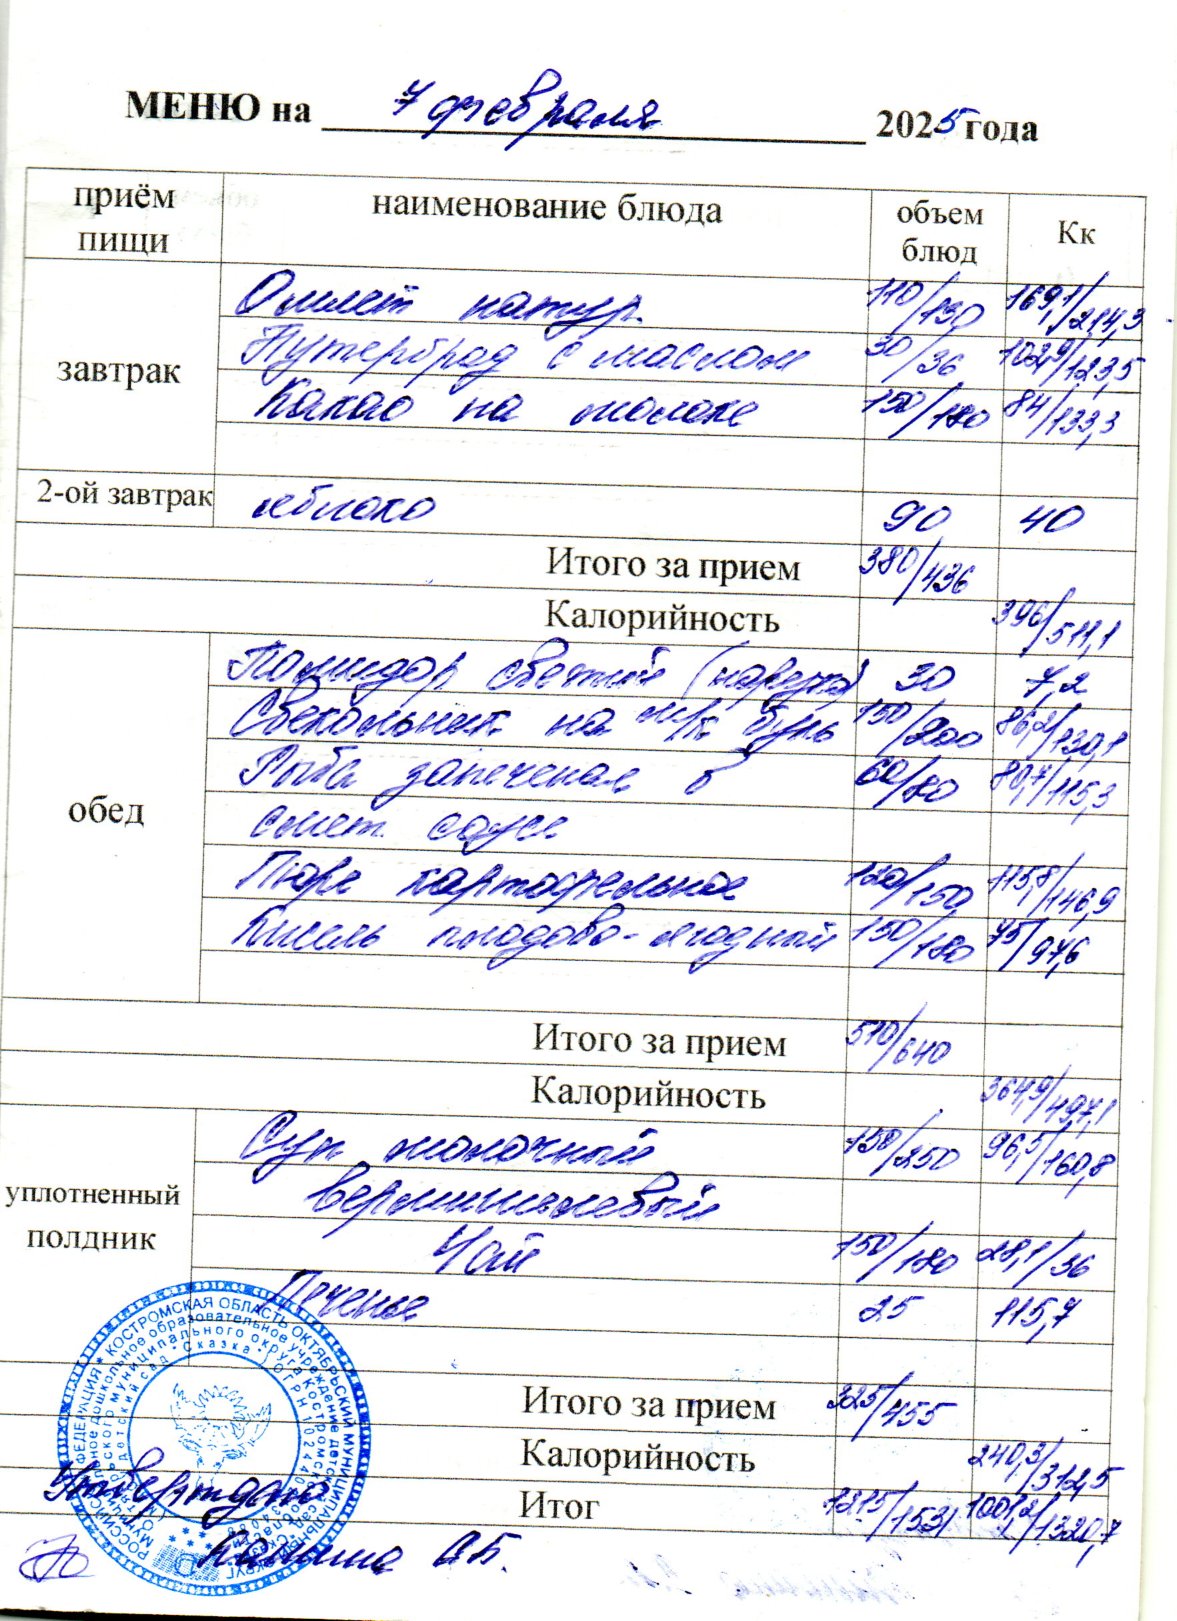 МЕНЮ на 7 февраля 2025 года
приём пищи наименование блюда объем блюд Кк
завтрак
Омлет натур. 110/130 169,1/214,3
Бутерброд с маслом 30/36 102,9/123,5
Какао на молоке 150/180 84/133,3
2-ой завтрак яблоко 90 40
Итого за прием 380/436
Калорийность 396/511,1
обед
Помидор свежий (нарезка) 30 7,2
Свекольник на м/к буль 150/200 86,2/130,1
Рыба запеченая в 60/80 80,7/115,3
смет. соусе
Пюре картофельное 120/150 115,8/146,9
Кисель плодово-ягодный 150/180 75/97,6
Итого за прием 510/640
Калорийность 364,9/497,1
уплотненный полдник
Суп молочный 150/250 96,5/160,8
вермишелевый
Чай 150/180 28,1/36
Печенье 25 115,7
Итого за прием 325/455
Калорийность 240,3/312,5
Итог 1215/1531 1001,2/1320,7
КОСТРОМСКАЯ ОБЛАСТЬ ОКТЯБРЬСКИЙ МУНИЦИПАЛЬНЫЙ ОКРУГ
дошкольное образовательное учреждение детский сад
муниципального округа Костромской области
детский сад "Сказка"
Утверждаю
С.Б.